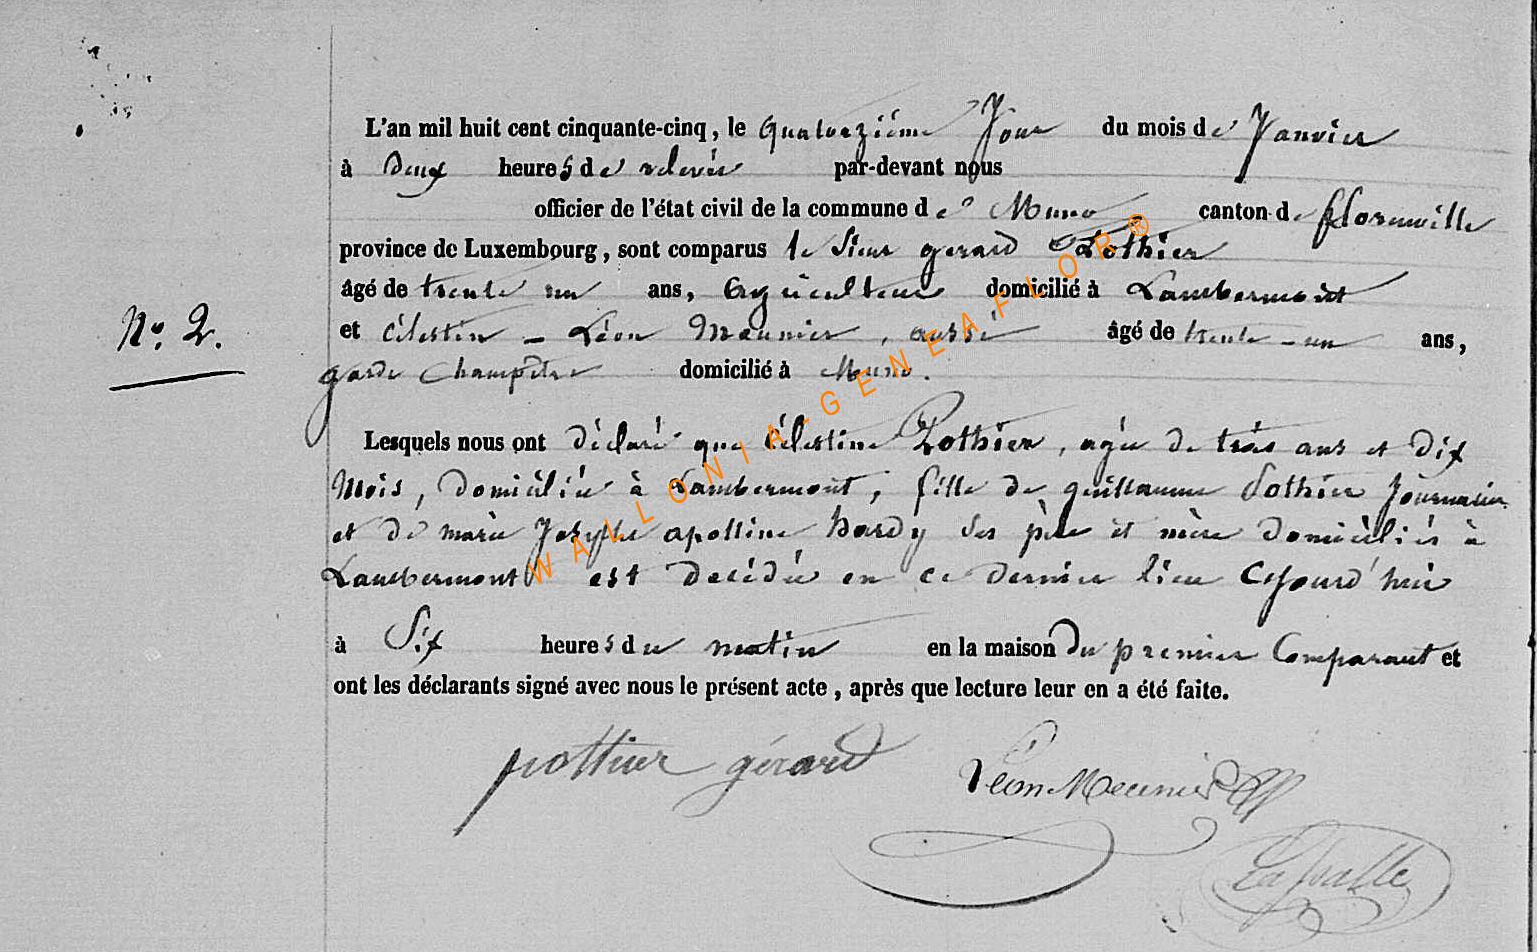 L'an mil huit cent cinquante-cinq, le quatorzième Jour du mois de Janvier
à Deux heures de relevée par-devant nous
officier de l'état civil de la commune de Muno canton de florenville
province de Luxembourg, sont comparus le Sieur gerard Pothier
âgé de trente un ans, agriculteur domicilié à Lambermont
N°. 2.
et Célestin - Léon Meunier, aussi âgé de trente-un ans,
garde Champêtre domicilié à Muno.
Lesquels nous ont déclaré que Célestine Pothier, agée de trois ans et Dix
Mois, Domiciliée à Lambermont, fille de guillaume Pothier Journalier
et de marie Josephe apolline hardy Ses père et mère domiciliés à
Lambermont est décédée en ce dernier lieu Cejourd'hui
à Six heures du matin en la maison Du premier Comparant et
ont les déclarants signé avec nous le présent acte, après que lecture leur en a été faite.
pothier gérard
Léon Meunier
WALLONIA-GENEAFLOR®